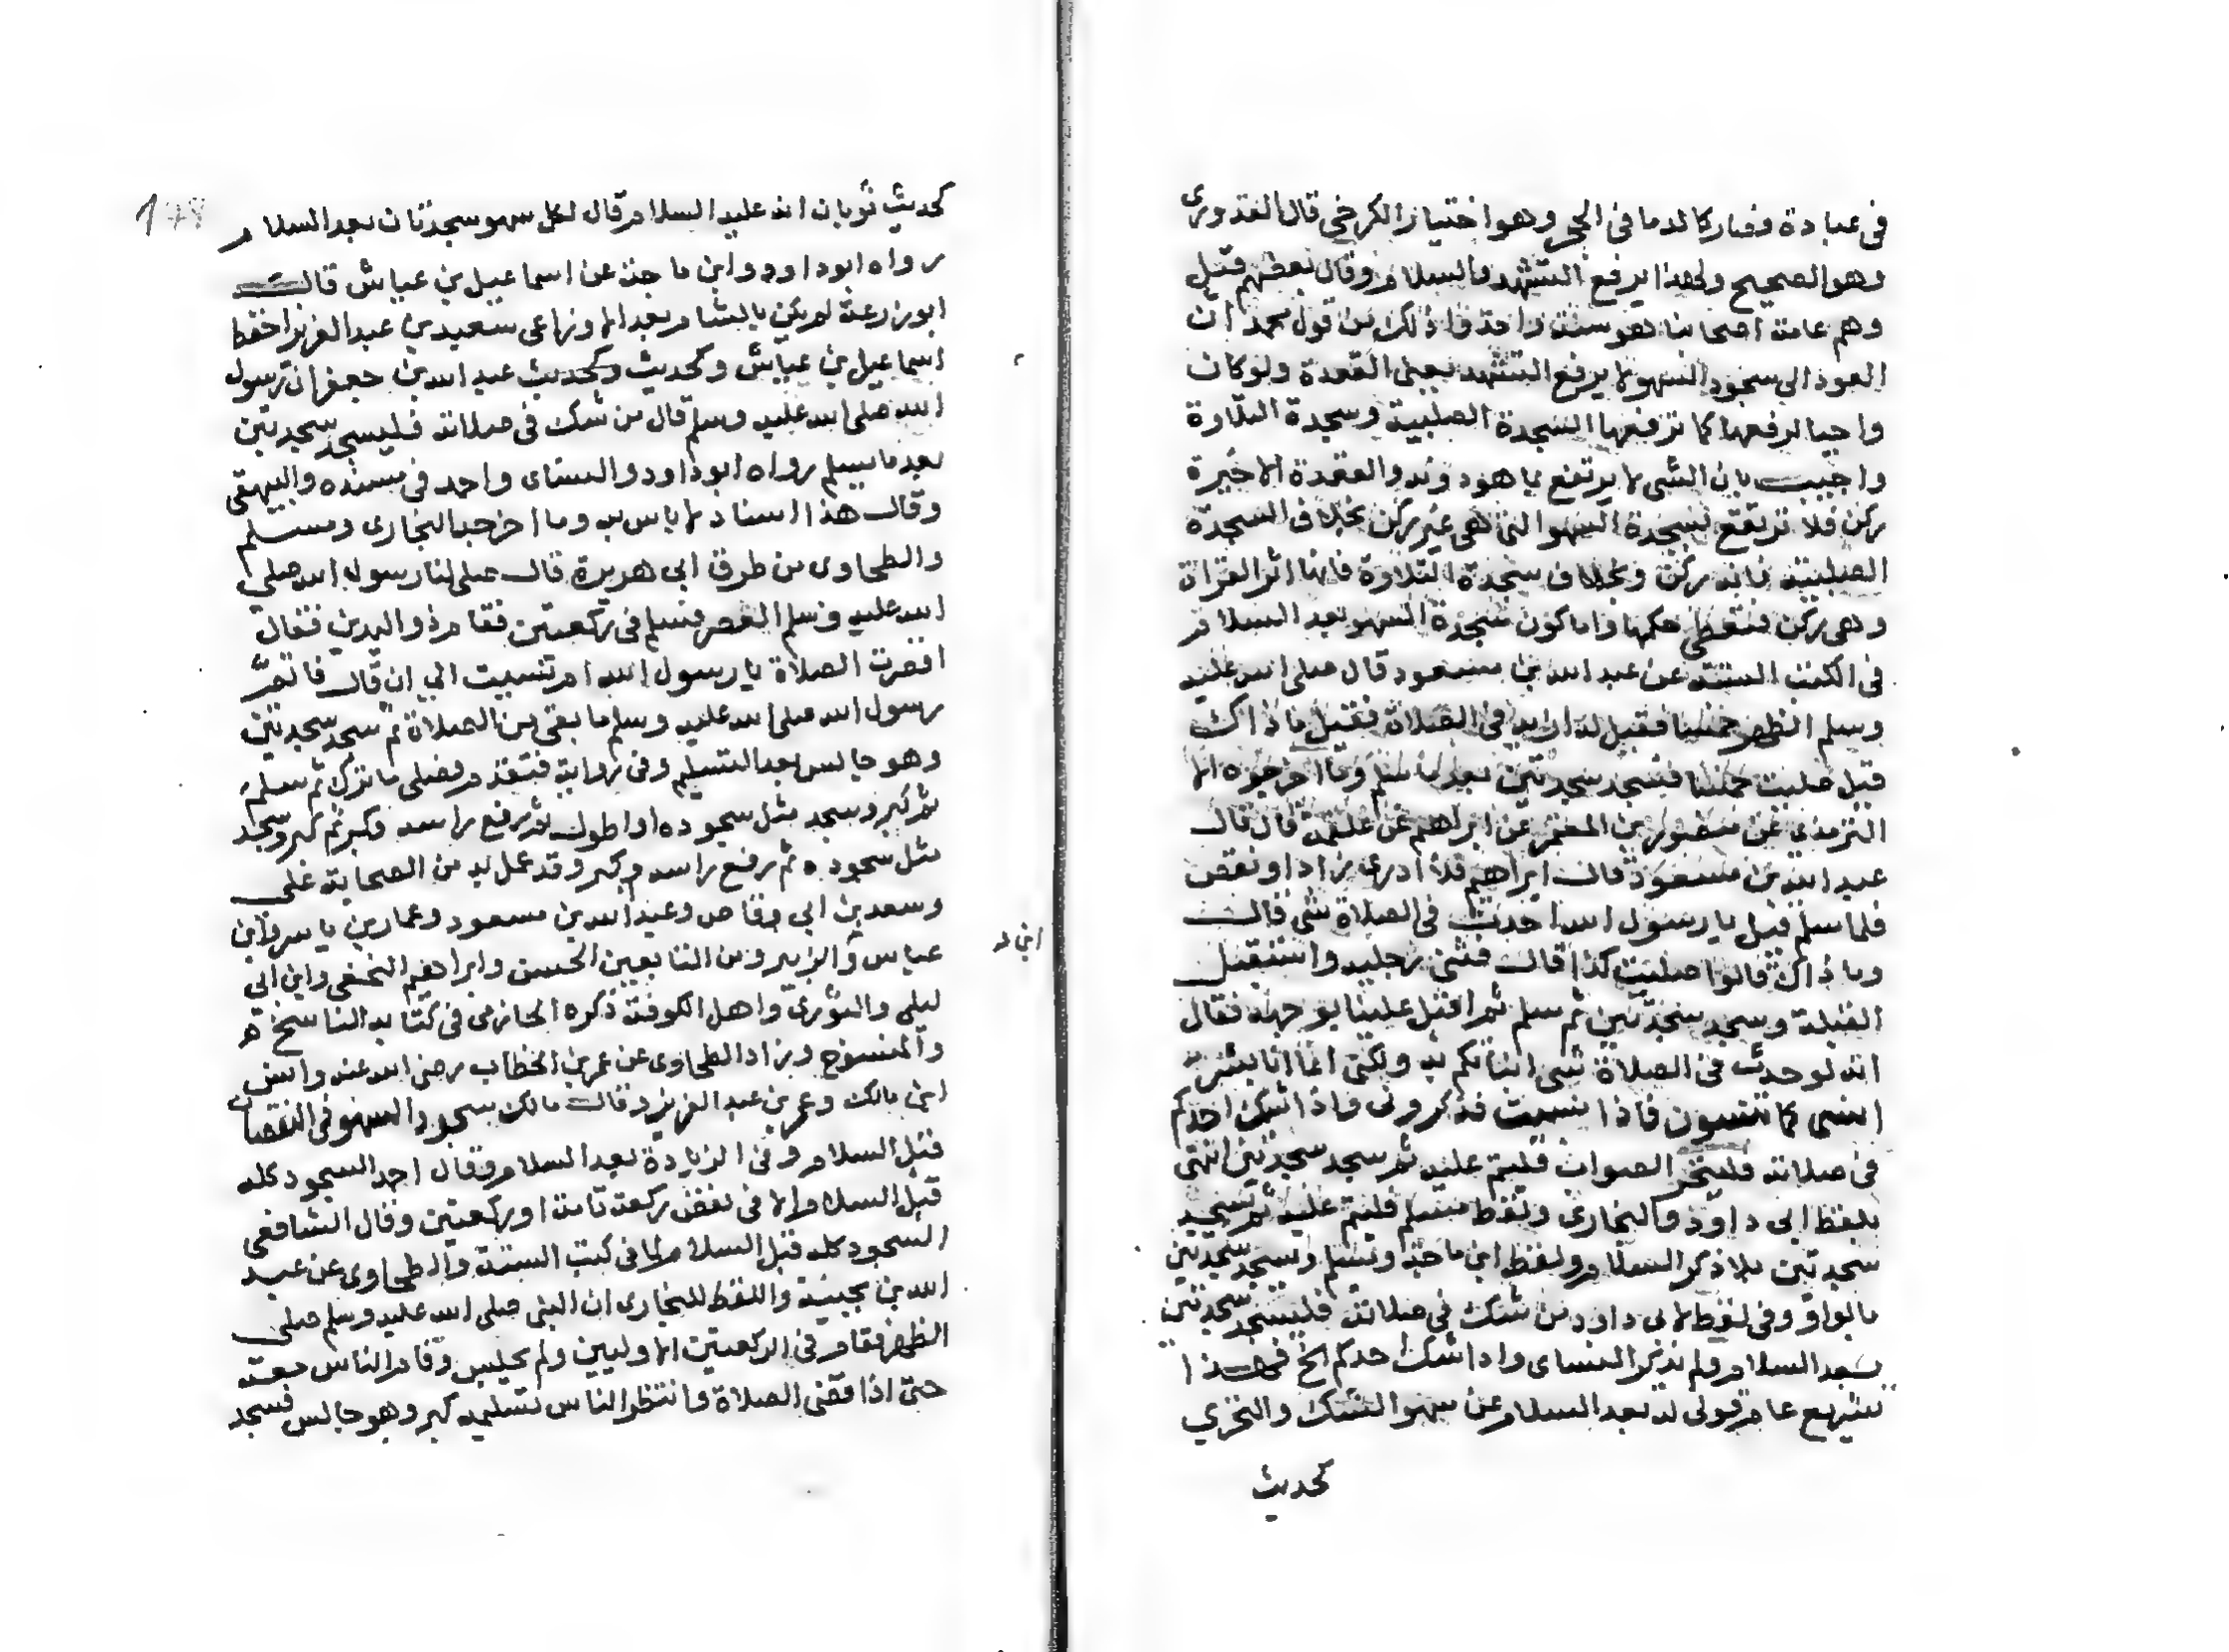 في عبادة فصار كالدما في الحج وهو اختيار الكرخي قال القدوري
وهو الصحيح ولهذا يرفع التشهد والسلام وقال بعضهم قبل
وهم عامة اصحابنا هو سنة واحذوا ذلك من قول محمد ان
العود الى سجود السهو لا يرفع التشهد يعني القعدة ولو كان
واجبا لرفعها كما ترفعها السجدة الصلبية وسجدة التلاوة
واجيب بان الشي لا يرتفع بما هو دونه والقعدة الاخيرة
ركن فلا ترتفع بسجدة السهو التي هي غير ركن بخلاف السجدة
الصلبية فانه ركن وبخلاف سجدة التلاوة فانها اثر القراة
وهي ركن فتعطى حكمها واما كون سجدة السهو بعد السلام
في الكتب الستة عن عبد الله بن مسعود قال صلى الله عليه
وسلم الظهر خمسا فقيل له ازيد في الصلاة فقيل ما ذاك
قيل صليت خمسا فسجد سجدتين بعد ما سلم وما اخرجوه الا
الترمذي عن منصور بن المعتمر عن ابراهيم عن علقمة قال قال
عبد الله بن مسعود قال ابراهيم فلا ادري زاد او نقص
فلما سلم قيل يا رسول الله احدث في الصلاة شي قال
وما ذاك قالوا صليت كذا قال فثنى رجليه واستقبل
القبلة وسجد سجدتين ثم سلم ثم اقبل علينا بوجهه فقال
انه لو حدث في الصلاة شي انباتكم به ولكني انما انا بشر
انسى كما تنسون فاذا نسيت فذكروني واذا شك احدكم
في صلاته فليتحر الصواب فليتم عليه ثم سجد سجدتين انتهى
بلفظ ابي داود والبخاري ولفظ مسلم فليتم عليه ثم يسجد
سجدتين بلا ذكر السلام ولفظ ابن ماجه ويسلم ويسجد سجدتين
بالواو وفي لفظ لابي داود من شك في صلاته فليسجد سجدتين
بعد السلام ولم يذكر النساى واذا شك احدكم الخ فهذا
تشريع عام قولى له بعد السلام عن سهو الشك والتحري
كحديث
كحديث ثوبان انه عليه السلام قال لكل سهو سجدتان بعد السلام
رواه ابو داود وابن ماجه عن اسماعيل بن عياش قال
ابو زرعة لم يكن بالشام بعد الاوزاعى سعيد بن عبد العزيز احفظ
اسماعيل بن عياش وكحديث وكحديث عبد الله بن جعفر ان رسول
الله صلى الله عليه وسلم قال من شك في صلاته فليسجد سجدتين
بعد ما يسلم رواه ابو داود والنساى واحمد في مسنده والبيهقى
وقال هذا اسناد لا باس به وما اخرجه البخارى ومسلم
والطحاوى من طرق ابى هريرة قال صلى لنا رسول الله صلى
الله عليه وسلم العصر فسلم في ركعتين فقام ذو اليدين فقال
اقصرت الصلاة يا رسول الله ام نسيت الى ان قال فاتم
رسول الله صلى الله عليه وسلم ما بقى من الصلاة ثم سجد سجدتين
وهو جالس بعد التسليم وفي رواية فتقدم فصلى ما ترك ثم سلم
ثم كبر وسجد مثل سجوده او اطول ثم رفع راسه وكبر ثم كبر وسجد
مثل سجوده ثم رفع راسه وكبر وقد عمل به من الصحابة على
وسعد بن ابى وقاص وعبد الله بن مسعود وعمار بن ياسر وابن
عباس والزبير ومن التابعين الحسن وابراهيم النخعى وابن ابى
ابن
ليلى والثورى واهل الكوفة ذكره الحازمى في كتابه الناسخ
والمنسوخ وزاد الطحاوى عن عمر بن الخطاب رضى الله عنه وانس
ابن مالك وعمر بن عبد العزيز وقال مالك سجود السهو في النقصان
قبل السلام وفى الزيادة بعد السلام وقال احمد السجود كله
قبل السلام الا في نقص ركعة تامة او ركعتين وقال الشافعى
السجود كله قبل السلام لما في كتب الستة والطحاوى عن عبد
الله بن بحينة واللفظ للبخارى ان النبى صلى الله عليه وسلم صلى
الظهر فقام في الركعتين الاوليين ولم يجلس وقام الناس معه
حتى اذا قضى الصلاة وانتظر الناس تسليمه كبر وهو جالس فسجد